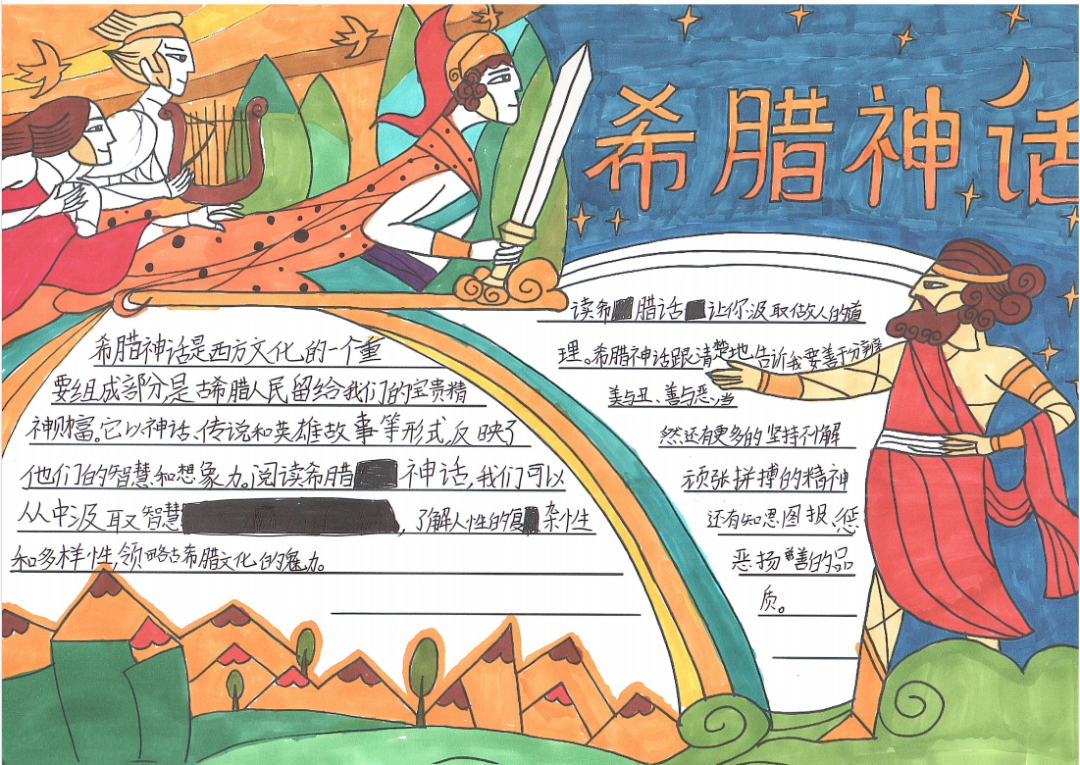 希腊神话
希腊神话是西方文化的一个重
要组成部分,是古希腊人民留给我们的宝贵精
神财富。它以神话、传说和英雄故事等形式,反映了
他们的智慧和想象力。阅读希腊神话,我们可以
从中汲取智慧,了解人性的复杂性
和多样性,领略古希腊文化的魅力。
读希腊话让你汲取做人的道
理。希腊神话跟清楚地告诉我要善于分辨
美与丑、善与恶,当
然还有更多的坚持不懈
顽张拼搏的精神
还有知恩图报,惩
恶扬善的品
质。